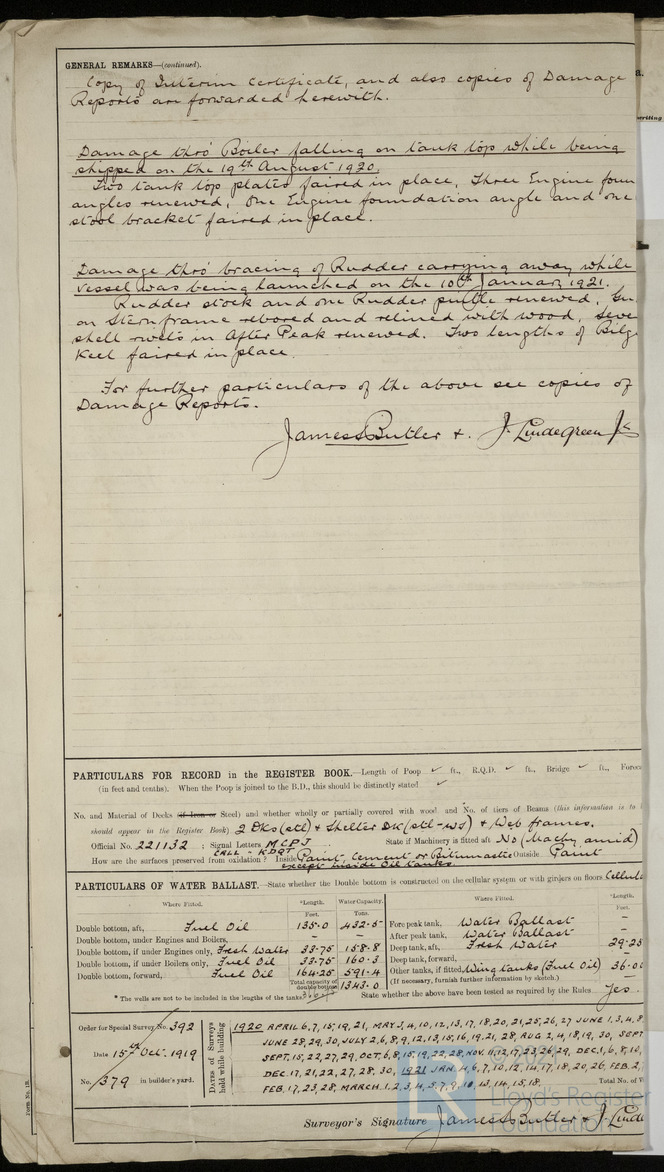 GENERAL REMARKS—(continued).
Copy of Interim Certificate, and also copies of Damage
Reports are forwarded herewith.
Damage thro' Boiler falling on tank top while being
shipped on the 19th August 1920.
Two tank top plates faired in place, Three Engine foun
angles renewed, One Engine foundation angle and one
stool bracket faired in place.
Damage thro' bracing of Rudder carrying away while
vessel was being launched on the 10th January 1921.
Rudder stock and one Rudder pintle renewed,
on Sternframe rebored and relined with wood, Seve
shell rivets in After Peak renewed. Two lengths of Bilg
Keel faired in place.
For further particulars of the above see copies of
Damage Reports.
James S Butler + J. Lindegreen Jr
PARTICULARS FOR RECORD in the REGISTER BOOK.—Length of Poop ✓ ft., R.Q.D. ✓ ft., Bridge ✓ ft., Forec
(in feet and tenths). When the Poop is joined to the B.D., this should be distinctly stated ✓
No. and Material of Decks (if Iron or Steel) and whether wholly or partially covered with wood and No. of tiers of Beams (this information is to
should appear in the Register Book) 2 Dks (stl) + Shelter Dk (stl-ws) + Web frames.
Official No. 221132 ; Signal Letters MCPJ State if Machinery is fitted aft No (Machy amid)
CALL - KDQT
How are the surfaces preserved from oxidation? Inside Paint, Cement or Bitumastic Outside Paint
except inside Oil tanks
PARTICULARS OF WATER BALLAST.—State whether the Double bottom is constructed on the cellular system or with girders on floors Cellula
Where Fitted. *Length. Water Capacity. Where Fitted. *Length.
Feet. Tons. Feet.
Double bottom, aft, Fuel Oil 135.0 432.5 Fore peak tank, Water Ballast –
Double bottom, under Engines and Boilers, – – After peak tank, Water Ballast –
Double bottom, if under Engines only, Fresh Water 33.75 158.8 Deep tank, aft, Fresh Water 29.25
Double bottom, if under Boilers only, Fuel Oil 33.75 160.3 Deep tank, forward, –
Double bottom, forward, Fuel Oil 164.25 591.4 Other tanks, if fitted, Wing tanks (Fuel Oil) 36.0
Total capacity of double bottom 1343.0 (If necessary, furnish further information by sketch.)
* The wells are not to be included in the lengths of the tanks. State whether the above have been tested as required by the Rules Yes
Order for Special Survey No. 392
Date 15th Oct. 1919
No. 379 in builder's yard.
Dates of Surveys held while building
1920 APRIL 6, 7, 15, 19, 21, MAY 3, 4, 10, 12, 13, 17, 18, 20, 21, 25, 26, 27 JUNE 1, 3, 4, 8
JUNE 28, 29, 30, JULY 2, 6, 8, 9, 12, 13, 15, 16, 19, 21, 28, AUG 2, 4, 18, 19, 30, SEPT
SEPT. 15, 22, 27, 29, OCT. 6, 8, 15, 19, 22, 28, NOV. 11, 12, 17, 23, 26, 29, DEC. 1, 6, 8, 10,
DEC. 17, 21, 22, 27, 28, 30, 1921 JAN. 4, 6, 7, 10, 12, 14, 17, 18, 20, 26, FEB. 2,
FEB. 17, 23, 28, MARCH 1, 2, 3, 4, 5, 7, 9, 10, 13, 14, 15, 18. Total No. of V
Surveyor's Signature James S Butler + J. Linde
Form No. 1B.
Lloyd's Register
Foundation